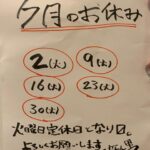 7月のお休み
2(火) 9(火)
16(火) 23(火)
30(火)
火曜日定休日となり〼。
よろしくお願いします。